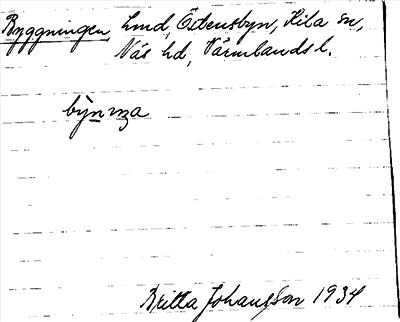 Byggningen, hmd, Östensbyn, Kila sn,
Näs hd, Värmlands l.
bỳnnza
Britta Johansson 1934